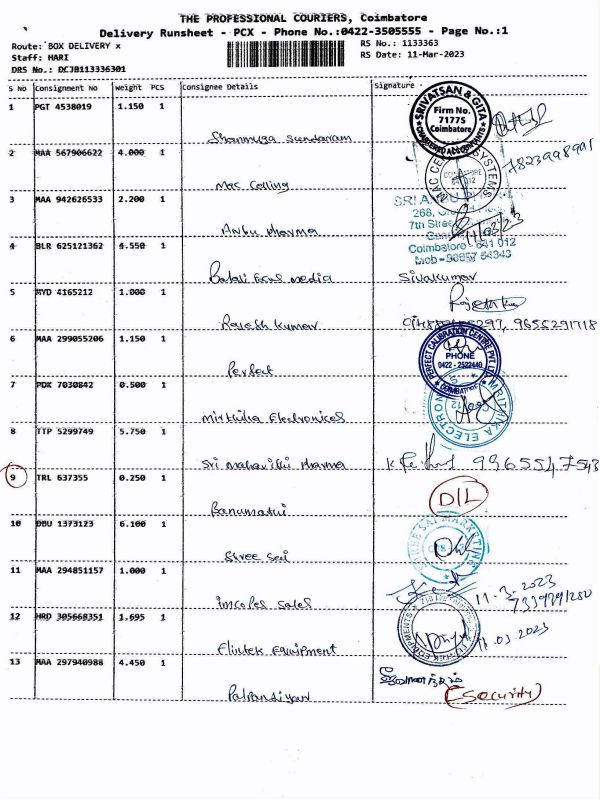 THE PROFESSIONAL COURIERS, Coimbatore
Delivery Runsheet - PCX - Phone No.:0422-3505555 - Page No.:1
Route: BOX DELIVERY x
RS No.: 1133363
Staff: HARI
RS Date: 11-Mar-2023
DRS No.: DCJB113336301
S No Consignment No Weight PCS Consignee Details Signature
1 PGT 4538019 1.150 1
SRIVATSAN & GITA
Firm No.
7177S
Coimbatore
CHARTERED ACCOUNTANTS
Shanmuga Sundaram
2 MAA 567906622 4.000 1
7823998991
Mac Colling
3 MAA 942626533 2.200 1
268,
7th Street
11/03/23
Anbu pharma
4 BLR 625121362 4.550 1
Coimbatore - 641 012
Mob - 98657 54343
media
Sivakumar
5 MYD 4165212 1.000 1
Rajesh kumar
9655291718
6 MAA 299055206 1.150 1
PERFECT CALIBRATION CENTRE PVT. LTD
PHONE
0422 - 2522440
COIMBATORE
Perfect
7 PDK 7030842 0.500 1
Mirthika Electronices
8 TTP 5299749 5.750 1
Sri mahavishi pharma
9 TRL 637355 0.250 1
D/L
Banumathi
10 DDU 1373123 6.100 1
SHREE SAI MARKETING
Shree Sai
11 MAA 294851157 1.000 1
11-3-2023
7339791280
sales
12 HRD 305668351 1.695 1
11.03.2023
Flintek Equipment
13 MAA 297940988 4.450 1
Palpandiyan
(Security)